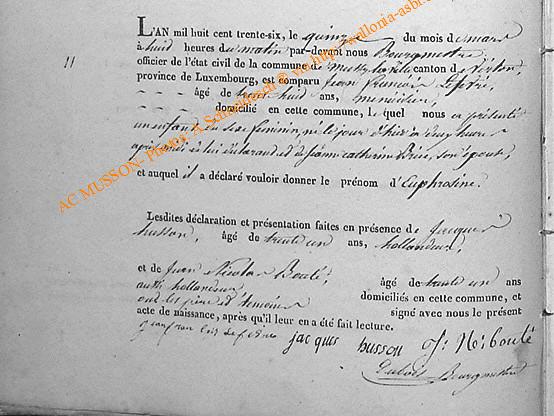 L'AN mil huit cent trente-six, le quinze du mois de mars
à huit heures du matin par-devant nous Bourgmestre,
officier de l'état civil de la commune de Mussy la ville canton de Virton,
11
province de Luxembourg, est comparu Jean François Lefevre,
âgé de trente huit ans, menuisier,
domicilié en cette commune, lequel nous a présenté
un enfant du sexe féminin, né le jour d'hier à deux heures
après midi, de lui déclarant et de Jeanne Catherine son épouse,
et auquel il a déclaré vouloir donner le prénom d'Euphrosine.
Lesdites déclaration et présentation faites en présence de Jacques
husson, âgé de trente un ans,
et de Jean Nicolas Boulé, âgé de trente un ans
domiciliés en cette commune, et
ont les père et témoins signé avec nous le présent
acte de naissance, après qu'il leur en a été fait lecture.
jean fran lefevre jacques husson J. N. boulé
Bourgmestre
AC MUSSON- Photo: A Schandasch © via http://wallonia-asb